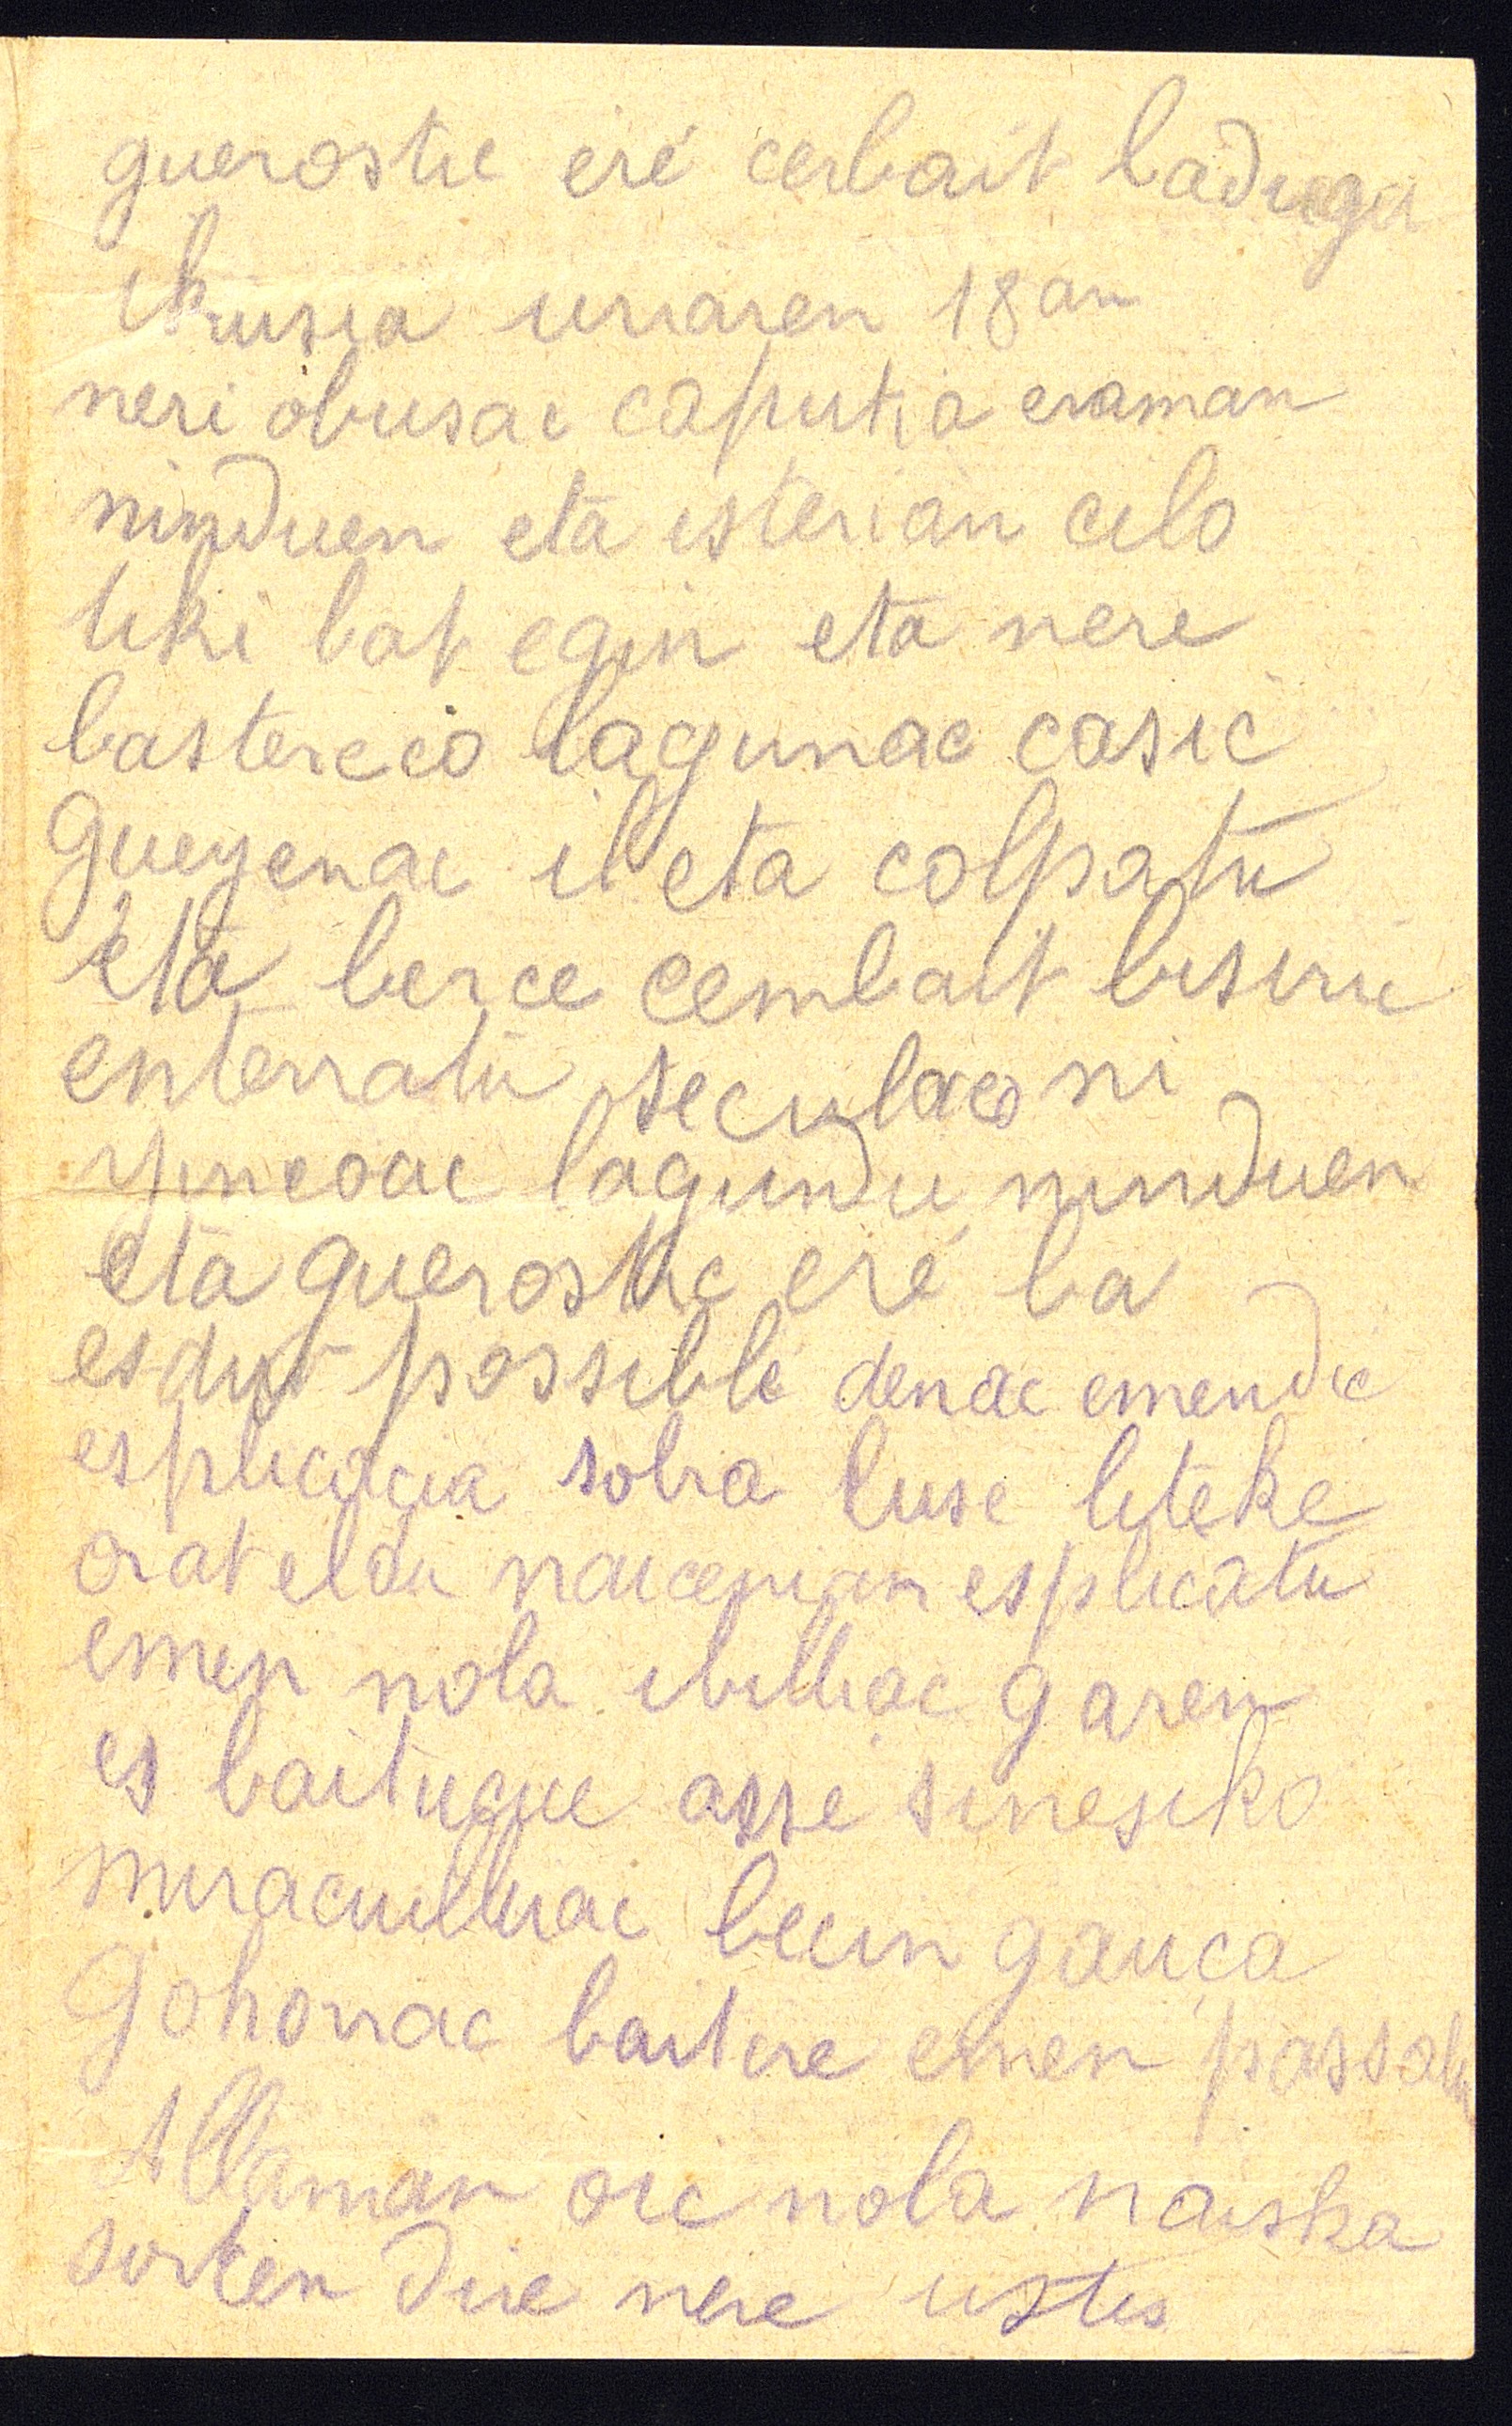 guerostic eré cerbait baduga
ikusia urriaren 18an
neri obusac caputia eraman
ninduen eta isterian cilo
tiki bat egin eta nere
bastereco lagunac casic
gueyenac il eta colpatu
eta berce cembait bisiric
enterratu seculaco ni
yincoac lagundu ninduen
eta guerostic eré ba
esdut possible denac emendic
esplicacia sobra luse liteke
orat eldu naicenian esplicatu
emen nola ibilliac garen
es baituque asse sinesiko
miraculluac becin gauça
gohorrac baitire emen passatu
Allaman oic nola naiska
sorten dire nere ustes